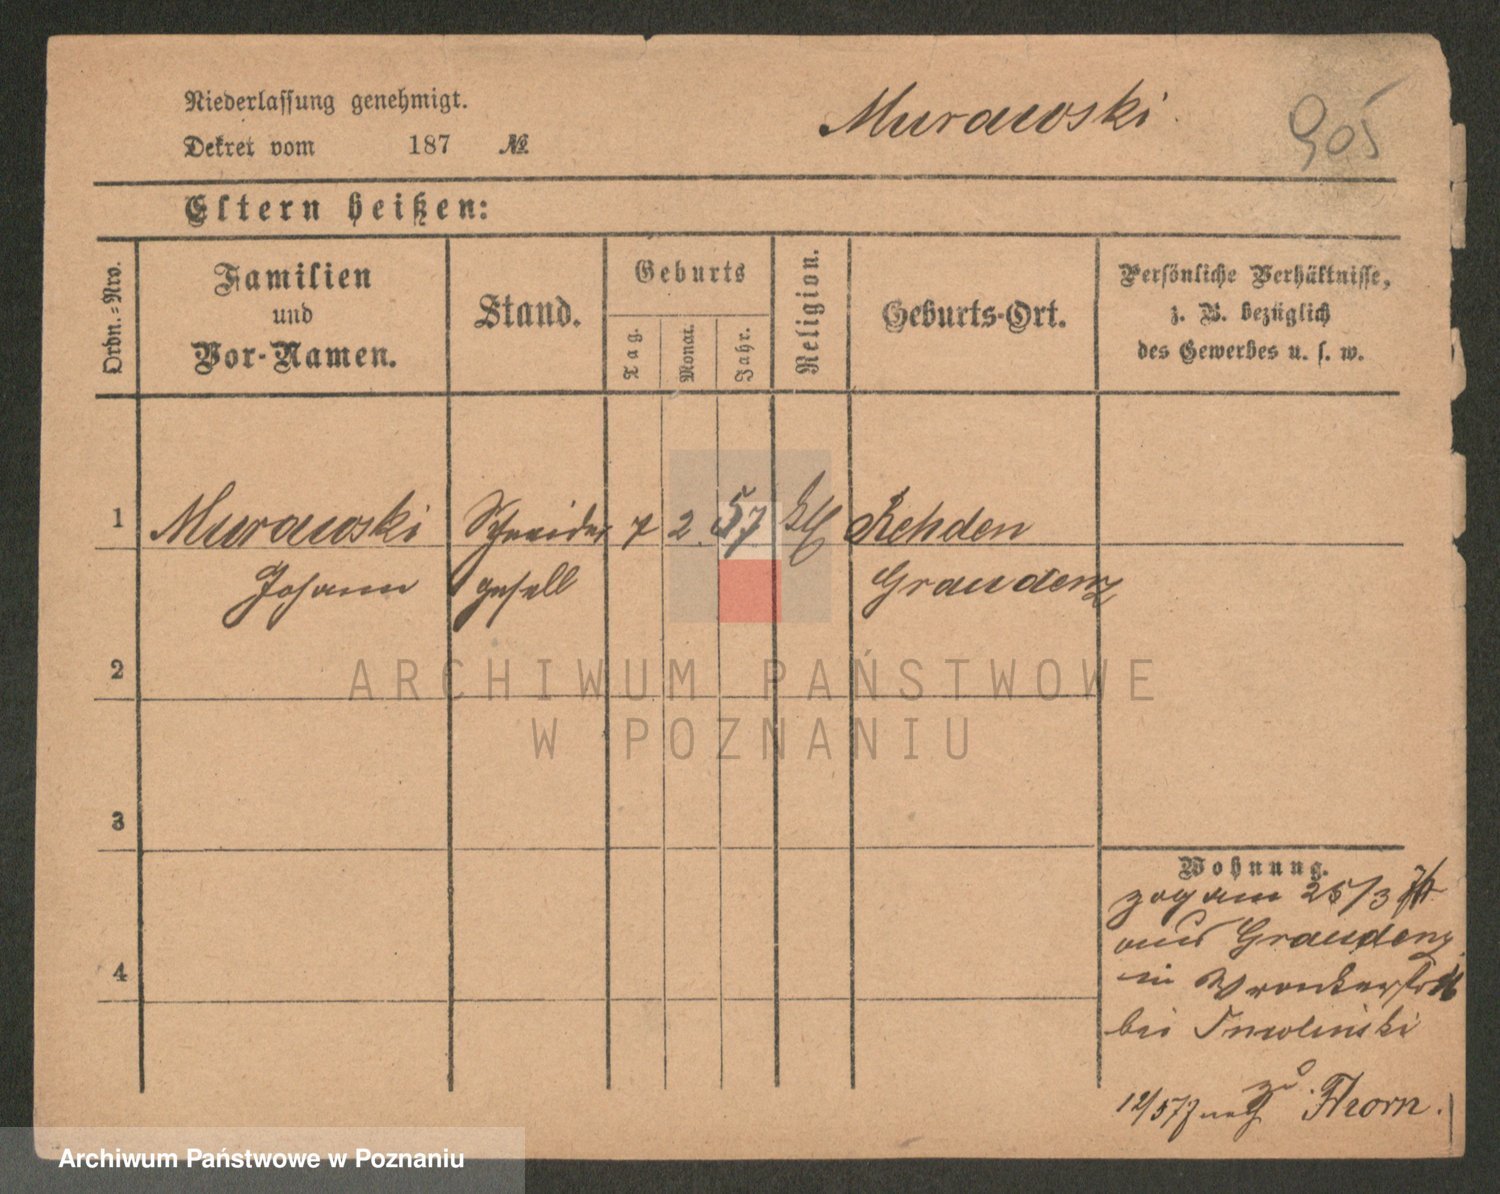 Niederlassung genehmigt.
Murawski
905
Dekret vom 187 №
Eltern heißen:
Ordn.=Nro.
Familien
und
Vor-Namen.
Stand.
Geburts
Tag.
Monat.
Jahr.
Religion.
Geburts-Ort.
Persönliche Verhältnisse,
z. B. bezüglich
des Gewerbes u. s. w.
1 Murawski Schneider 7 2. 57 Rehden
Johann gesell Graudenz
2
3
4
Wohnung.
zog am 25/3
aus Graudenz
in Wronkerstr
bei
zu
12/5 77 nach Thorn.
ARCHIWUM PAŃSTWOWE
W POZNANIU
Archiwum Państwowe w Poznaniu